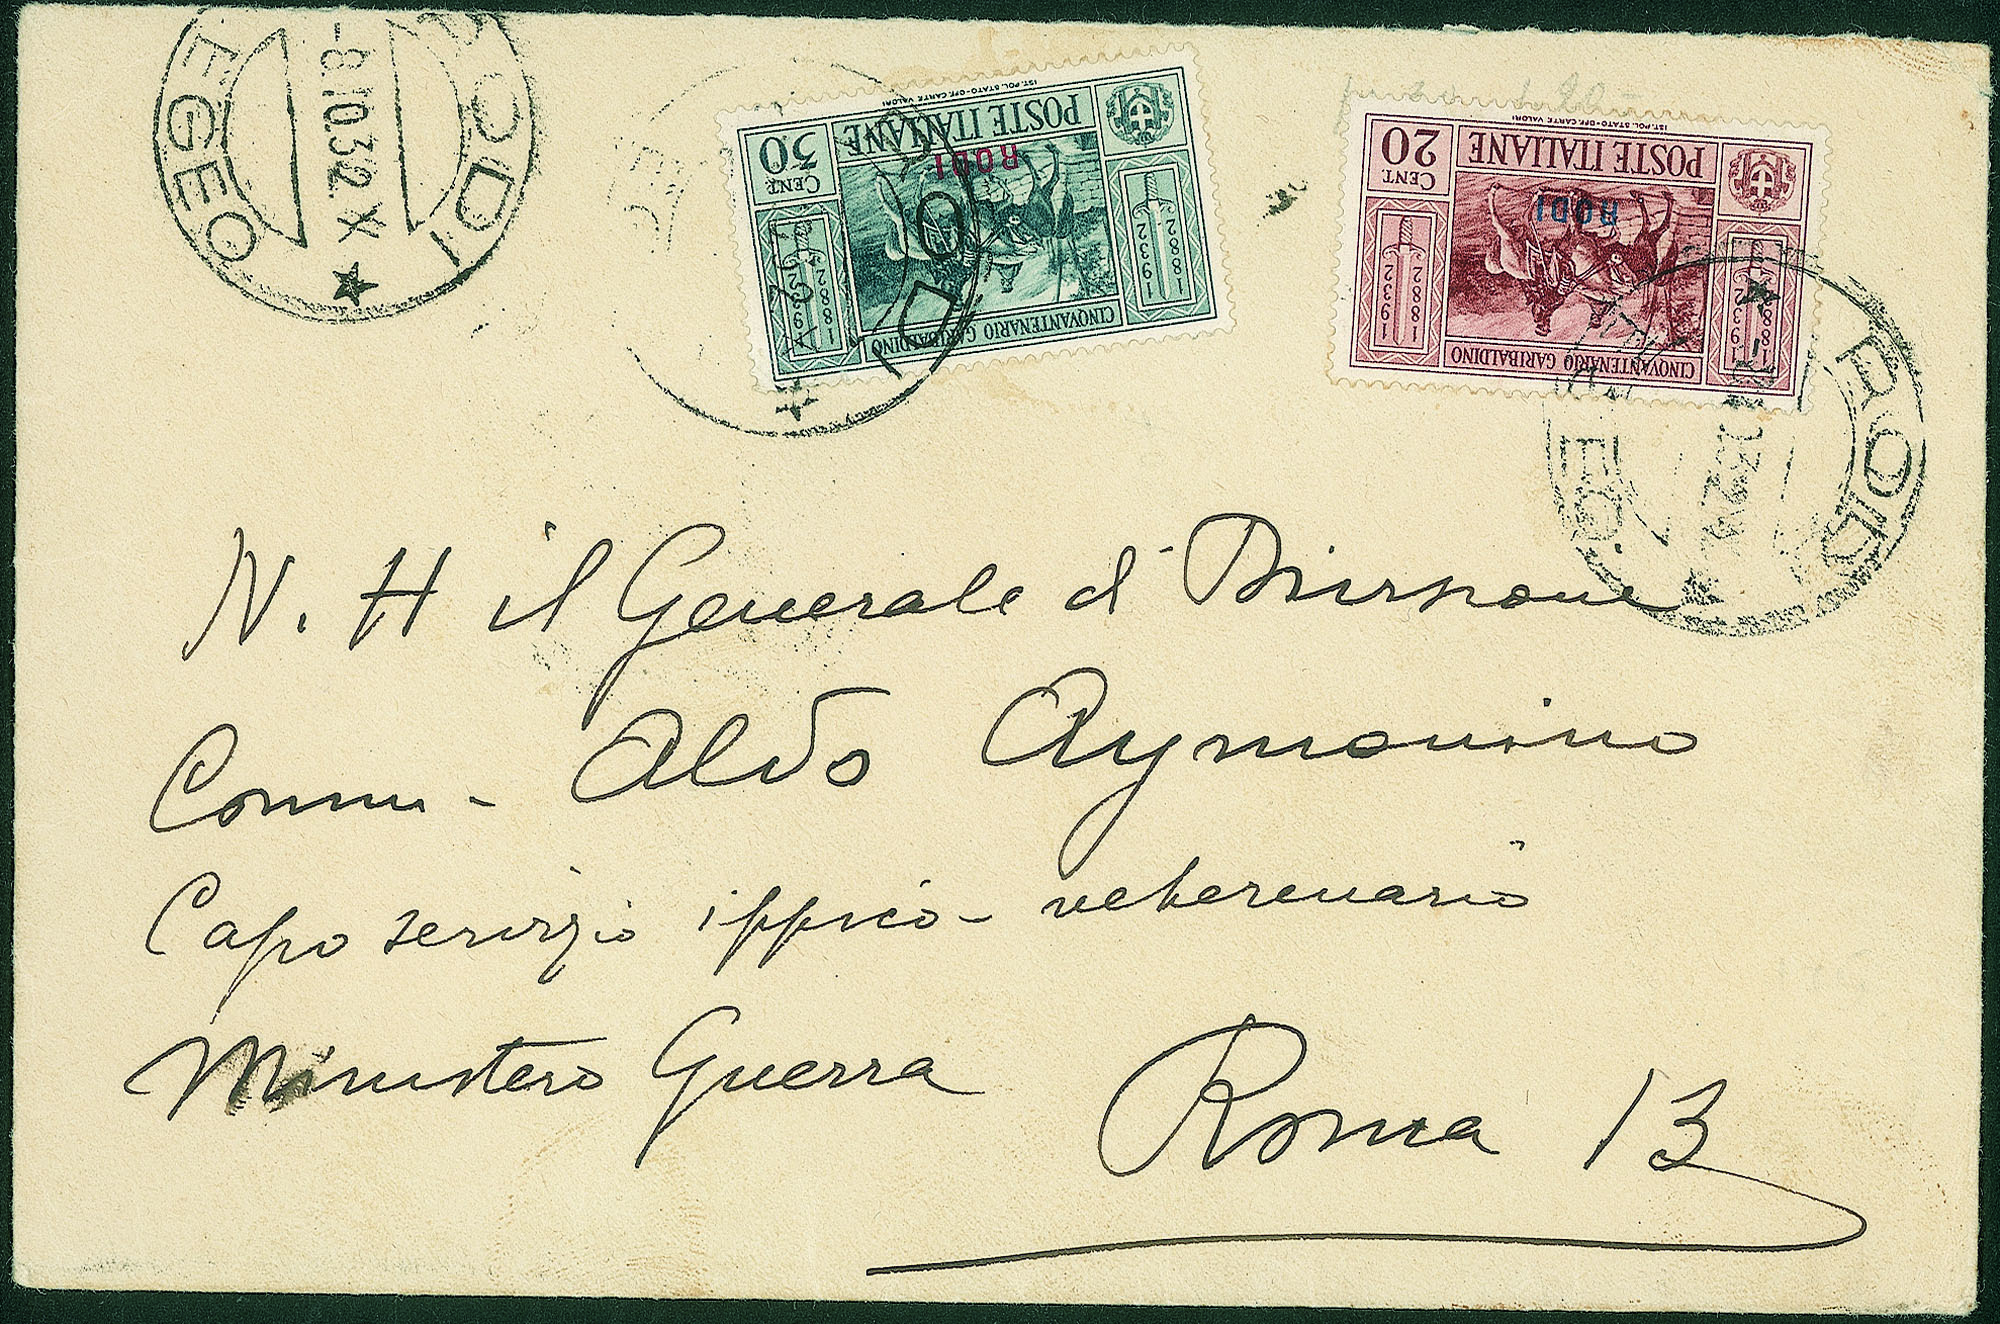 RODI
EGEO
-8.10.32 X
IST. POL. STATO-OFF. CARTE VALORI
POSTE ITALIANE
30
CENT.
RODI
1882
1932
1882
1932
CINQVANTENARIO GARIBALDINO
IST. POL. STATO-OFF. CARTE VALORI
POSTE ITALIANE
20
CENT.
RODI
1882
1932
1882
1932
CINQVANTENARIO GARIBALDINO
RODI
N. H il Generale d' Divisione
Comm - Aldo Aymonino
Capo servizio ippico - veterenario
Ministero Guerra
Roma 13